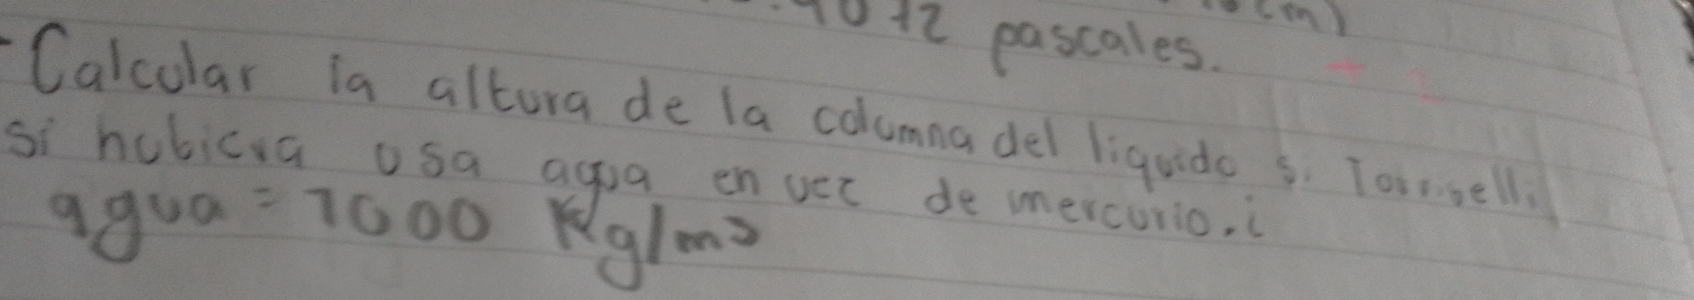 pascales.
- Calcular la altura de la columna del liquido si Torricelli
si hubiera usa agua en vez de mercurio.
agua = 1000 Kg/m3